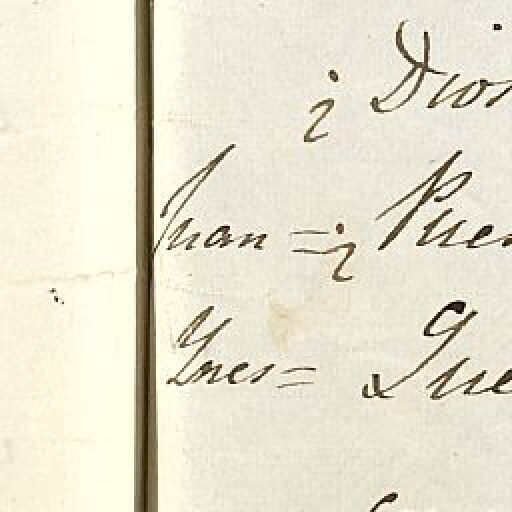 ¿ Dios
Juan = ¿ Pues
Ynes = Que